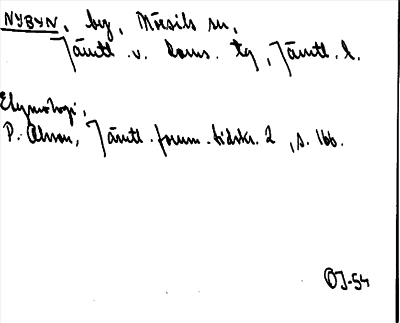 NYBYN, by, Mörsils sn,
Jämtl. v. doms. tg, Jämtl. l.
Etymologi,
P. Olsson, Jämtl. fornm. tidskr. 2, s. 166.
OJ-54